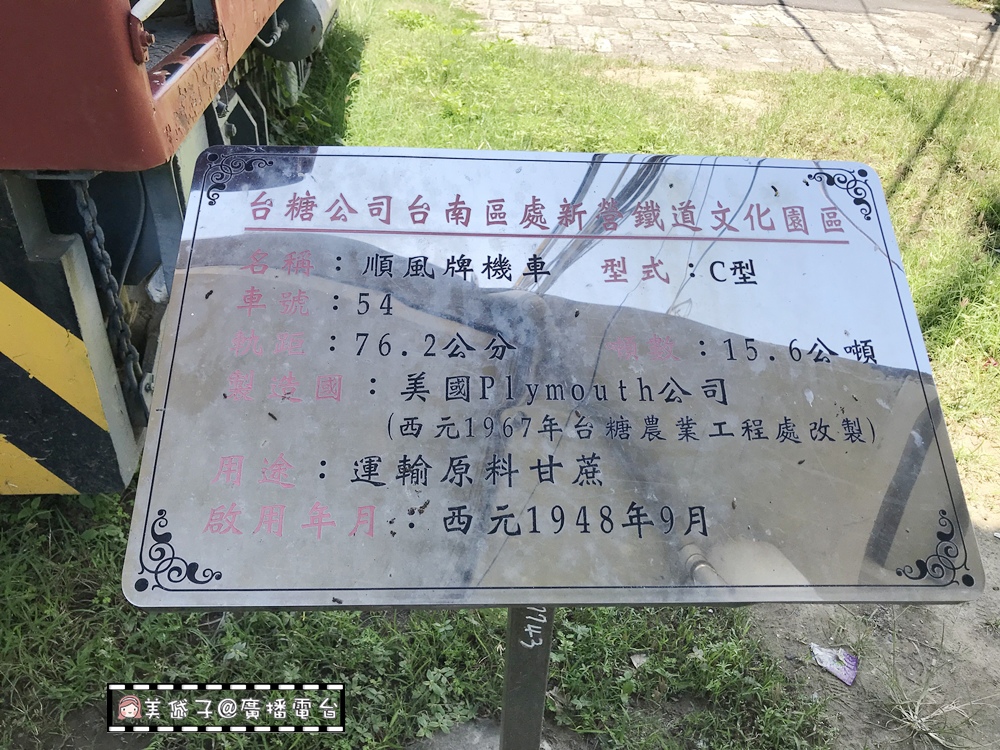 台糖公司台南區處新營鐵道文化園區
名稱：順風牌機車 型式：C型
車號：54
軌距：76.2公分 噸數：15.6公噸
製造國：美國Plymouth公司
(西元1967年台糖農業工程處改製)
用途：運輸原料甘蔗
啟用年月：西元1948年9月
7743
美黛子@廣播電台